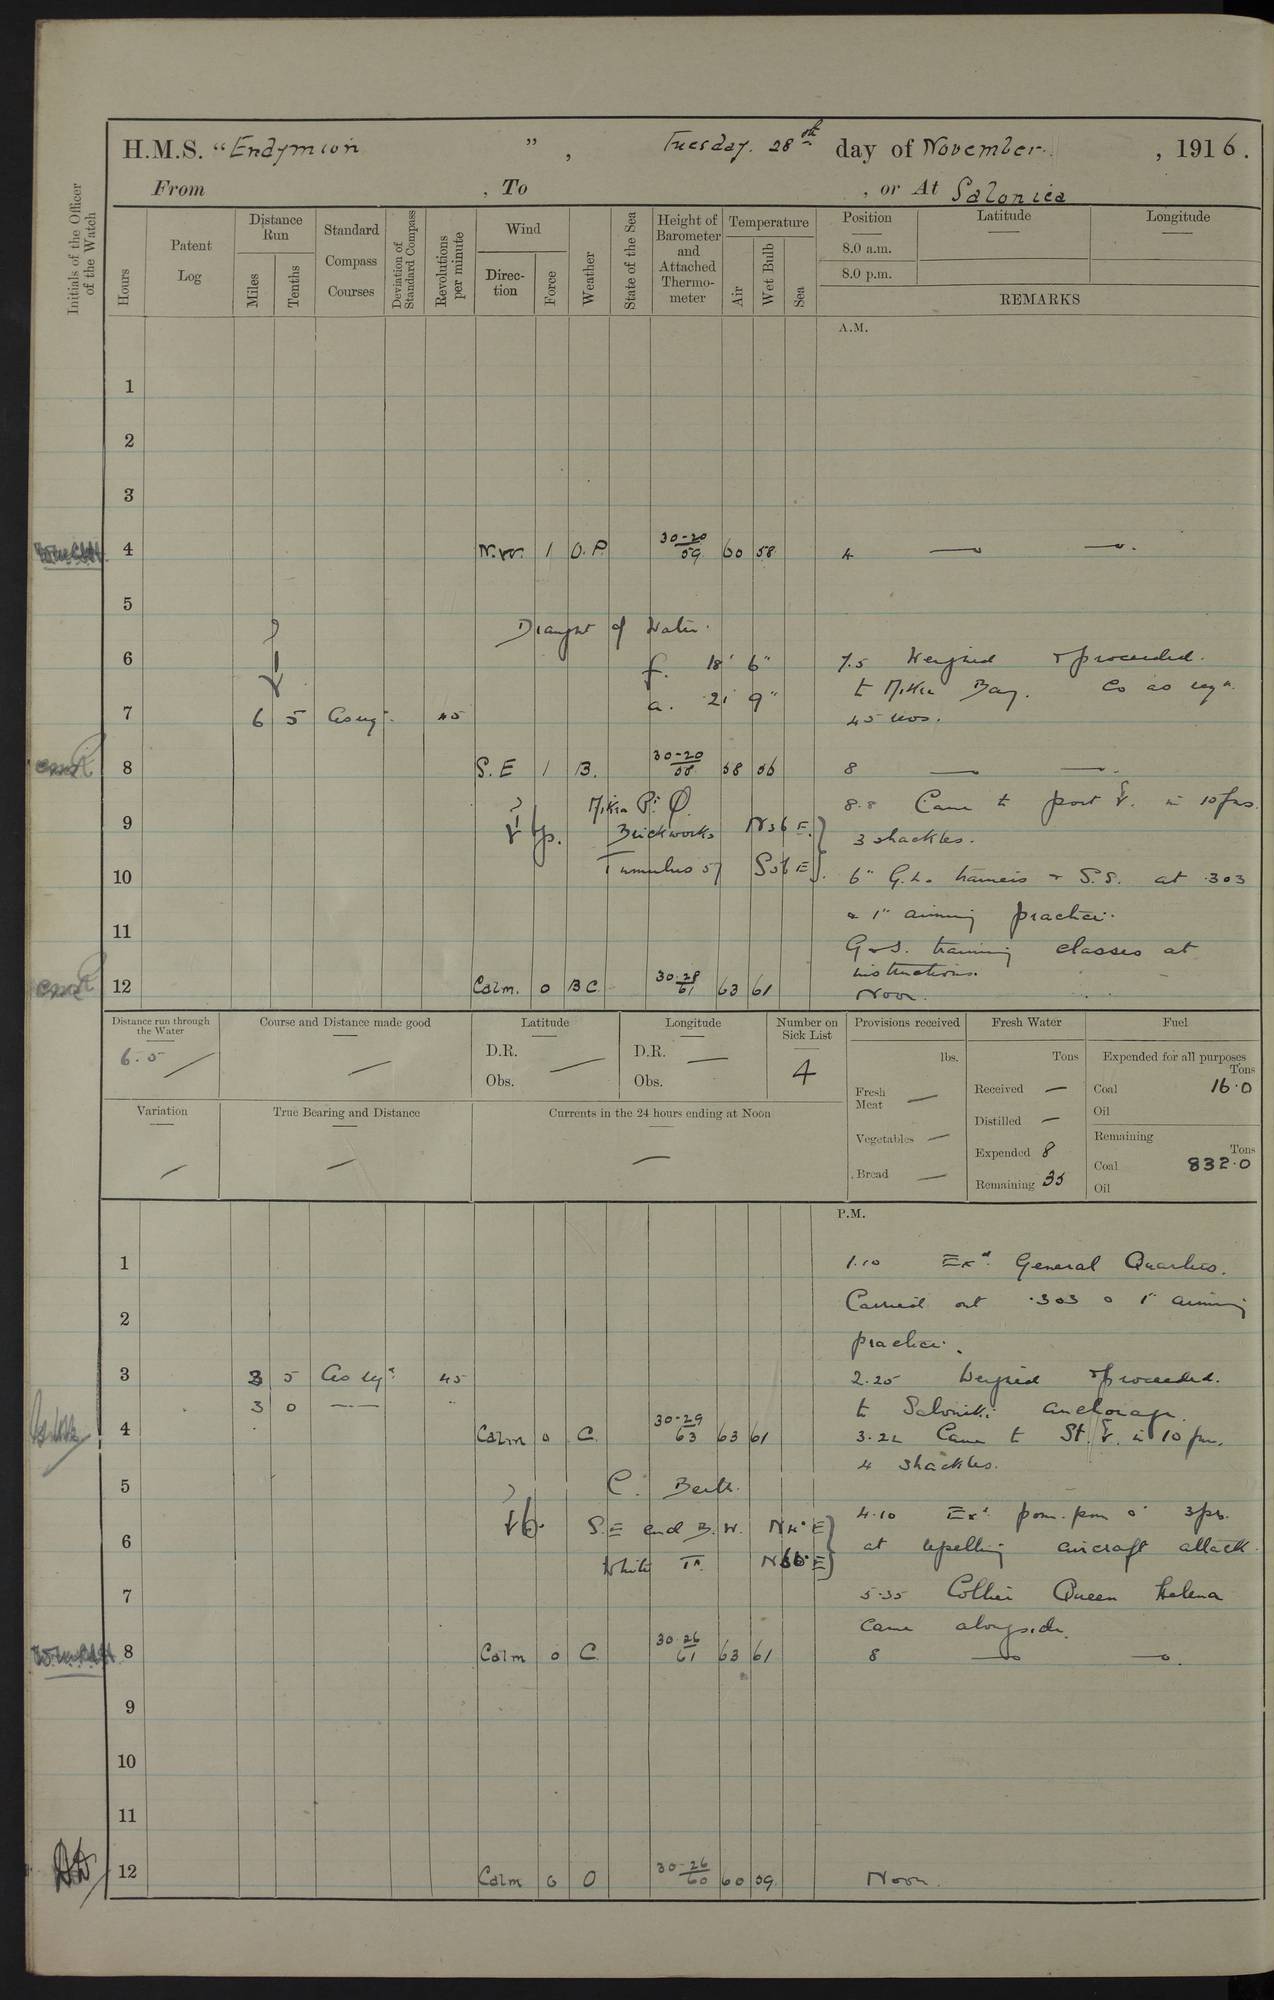 H.M.S. "Endymion", Tuesday. 28th day of November, 1916.
From , To , or At Salonica
Initials of the Officer of the Watch
Hours
Patent Log
Distance Run
Miles
Tenths
Standard Compass Courses
Deviation of Standard Compass
Revolutions per minute
Wind
Direc-tion
Force
Weather
State of the Sea
Height of Barometer and Attached Thermo-meter
Temperature
Air
Wet Bulb
Sea
Position
Latitude
Longitude
8.0 a.m.
8.0 p.m.
REMARKS
A.M.
1
2
3
4 N.W. 1 O.P. 30-20 59 60 58 4
5
Draught of Water.
6 f. 18' 6" 7.5 Weighed & proceeded.
a. 21' 9" to Mikra Bay. Co as reqd.
7 6 5 As reqd. 45 45 revs.
8 S.E 1 B. 30-20 58 58 56 8
Mikra Pt. 8.8 Came to port in 10 fms.
9 Brickworks 3 shackles.
Tumulus 57
10 6" G.L. trainers & S.S. at .303
& 1" aiming practice.
11 G & S. training classes at
instructions.
12 Calm. 0 BC 30.28 61 63 61 Noon.
Distance run through the Water
6.5
Course and Distance made good
Latitude
D.R.
Obs.
Longitude
D.R.
Obs.
Number on Sick List
4
Provisions received
lbs.
Fresh Meat
Vegetables
Bread
Fresh Water
Tons
Received
Distilled
Expended 8
Remaining 35
Fuel
Expended for all purposes
Tons
Coal 16.0
Oil
Remaining
Tons
Coal 832.0
Oil
Variation
True Bearing and Distance
Currents in the 24 hours ending at Noon
P.M.
1 1.10 Exd. General Quarters.
Carried out .303 & 1" aiming
2 practice.
3 3 5 As reqd. 45 2.25 Weighed & proceeded.
3 0 to Salonika anchorage.
4 Calm 0 C. 30-29 63 63 61 3.22 Came to St. in 10 fm.
4 shackles.
5 C. Berth.
S.E end B.W. 4.10 Exd. pom. pom & 3 prs.
6 at repelling aircraft attack.
White
7 5.35 Collier Queen Helena
came alongside.
8 Calm 0 C. 30.26 61 63 61 8
9
10
11
12 Calm 0 O 30-26 60 60 59 Noon.